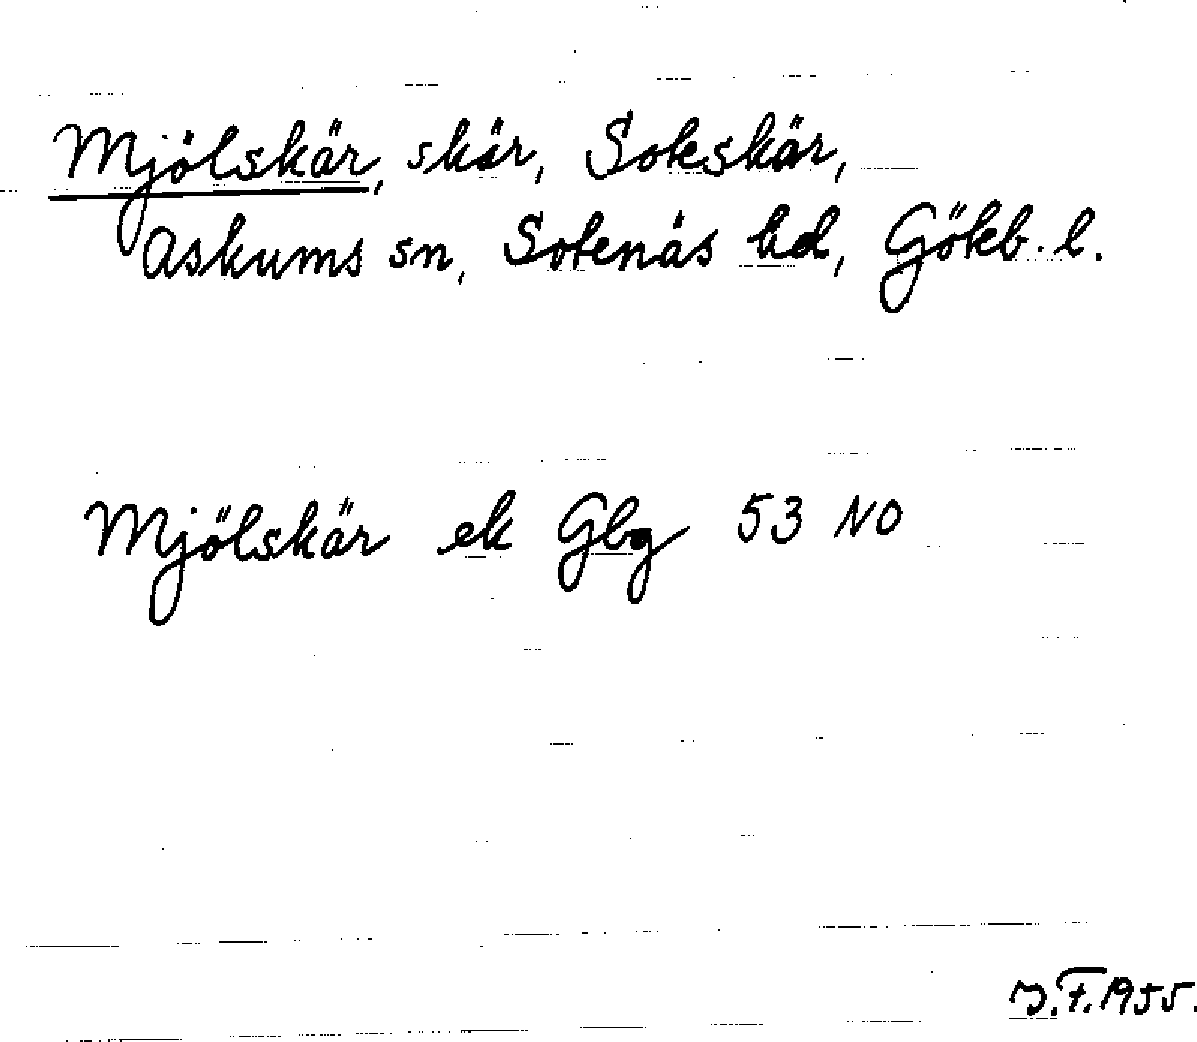 Mjölskär, skär, Sokskär,
Askums sn, Sotenäs hd, Gökb. l.
Mjölskär ek Gbg 53 NO
J.F. 1955.